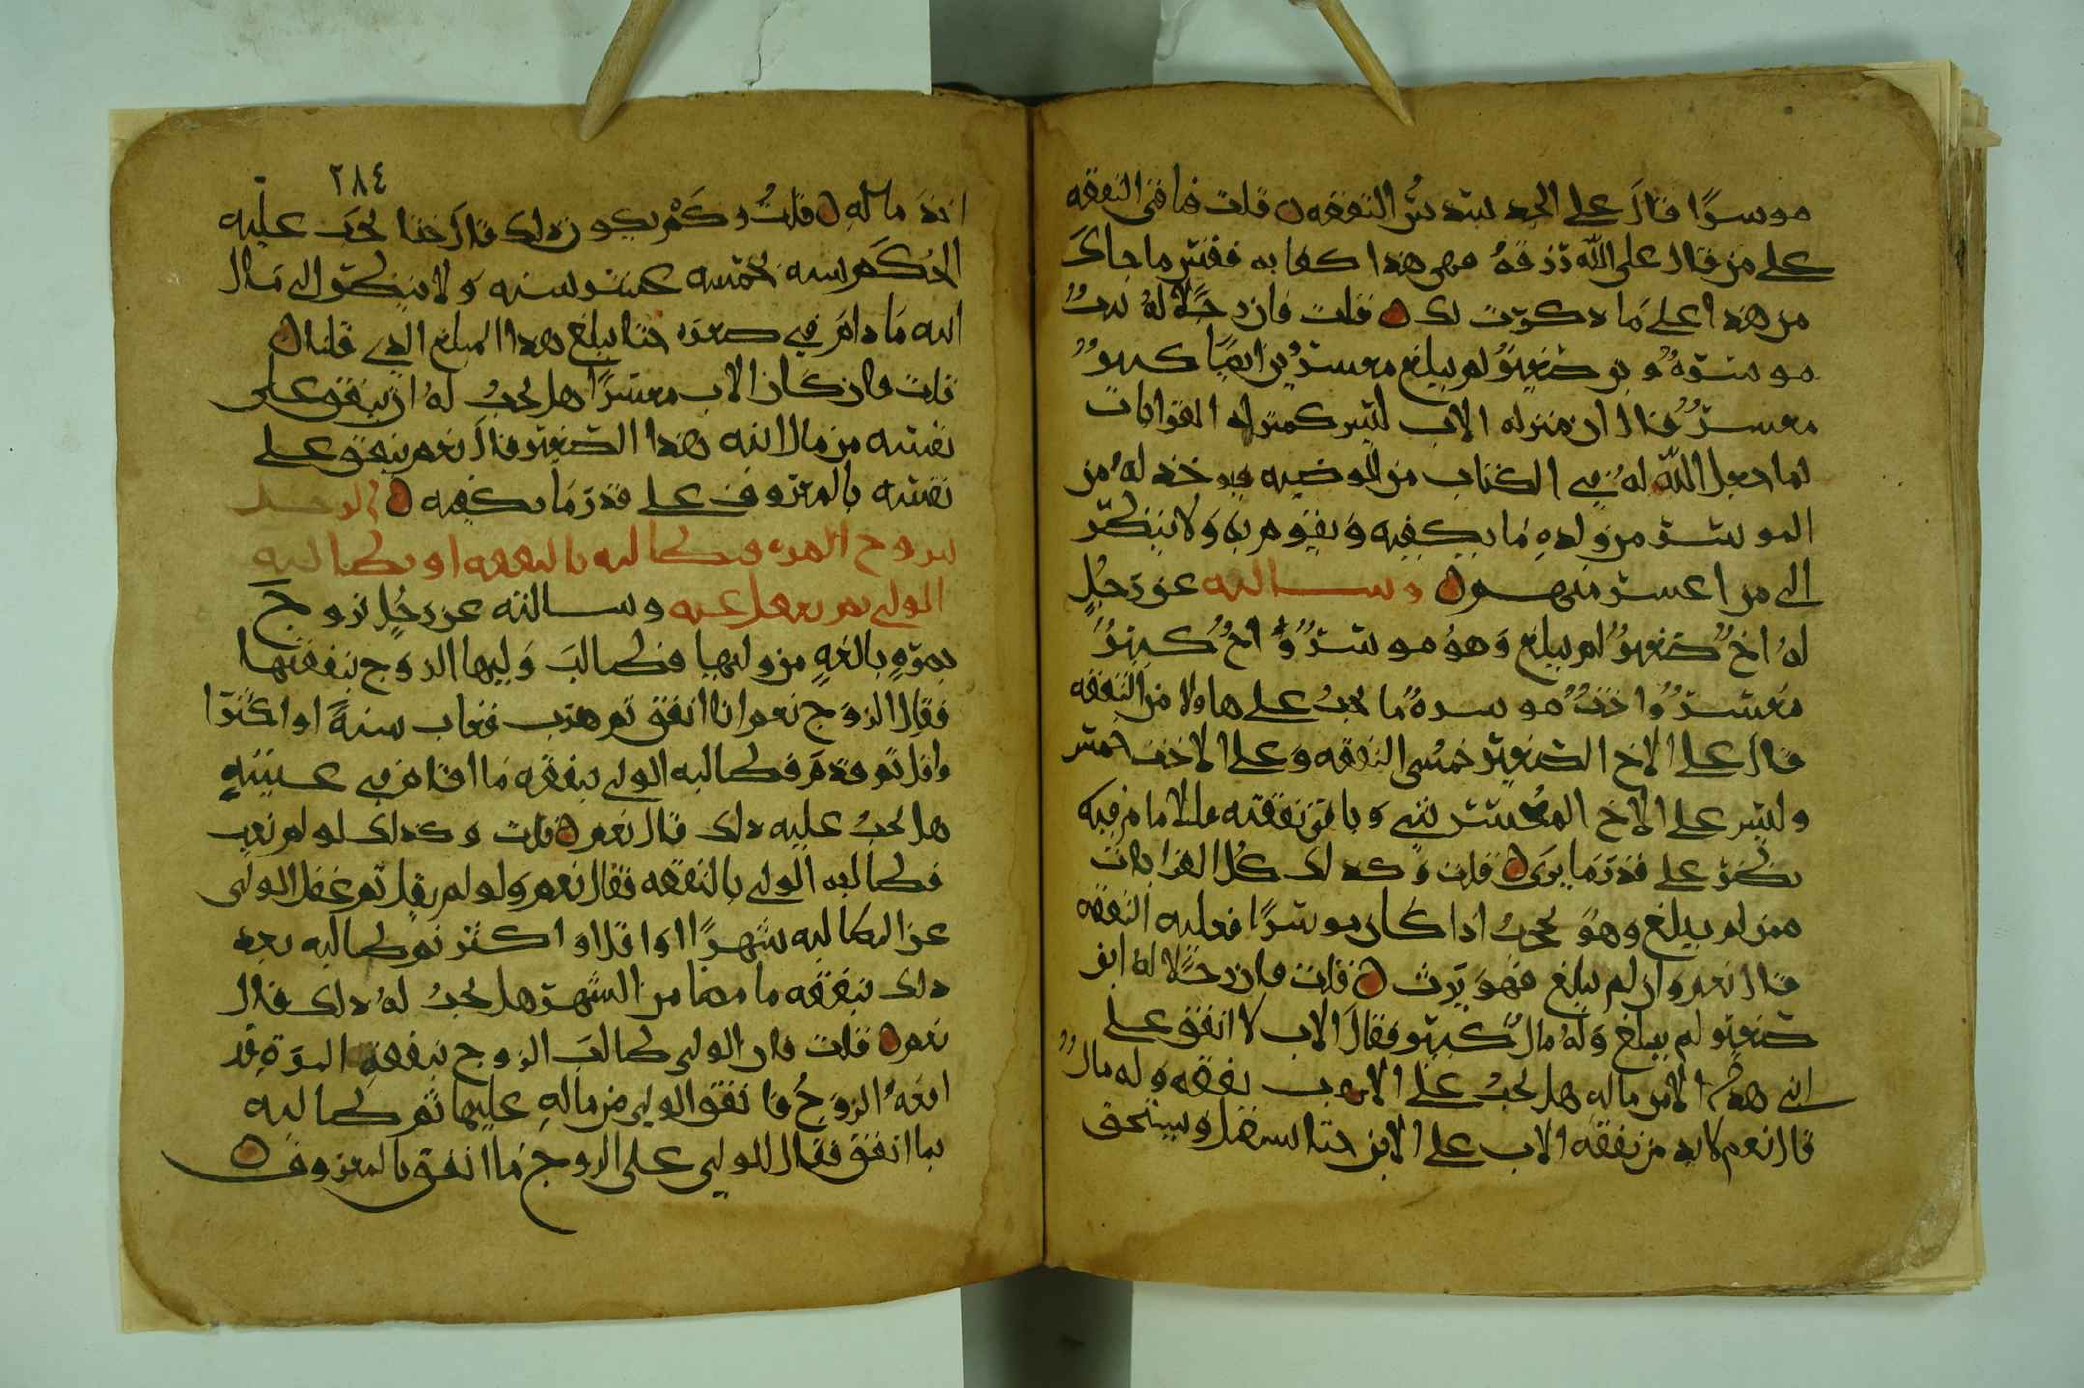 موسرا قال على الجد سدس النفقه قلت فباقي النفقه
على من قال على الله رزقه فهي هذا كفايه ففسر ما جاك
من هذا على ما ذكرت لك قلت فان رجلا له بنت
موسره وبن صغير لم يبلغ معسر وبن ايضا كبير
معسر قال ان منزله الاب ليس كمنزله القرابات
لما جعل الله له في الكتاب من الوصيه فيوخذ له من
الموسر من ولده ما يكفيه ويقوم به ولا ينظر
الى من اعسر منهم وسالته عن رجل
له اخ صغير لم يبلغ وهو موسر واخ كبير
معسر واخت موسره ما يجب على هاولا من النفقه
قال على الاخ الصغير خمسي النفقه وعلى الاخت خمس
وليس على الاخ المعسر شي وباقي نفقته على الامام فيه
ينظر على قدر ما يرى قلت وكذلك كل القرابات
ممن لم يبلغ وهو يحجب اذا كان موسرا فعليه النفقه
قال نعم وان لم يبلغ فهو يرث قلت فان رجلا له ابن
صغير لم يبلغ وله مال كبير فقال الاب لا انفق على
ابني هذا الا من ماله هل يجب على الاب نفقه وله مال
قال نعم لابد من نفقه الاب على الابن حتا يستقل ويستحق
٢٨٤
اخذ ماله قلت وكم يكون ذلك قال حتا يجب عليه
الحكم ابن خمسه عشر سنه ولا ينظر الى مال
ابنه ما دام في صغره حتا يبلغ هذا المبلغ الذي قلنا
قلت وان كان الاب معسرا هل يجب له ان ينفق على
نفسه من مال ابنه هذا الصغير قال نعم ينفق على
نفسه بالمعروف على قدر ما يكفيه في الرجل
يتزوج المره فيطالبه بالنفقه او يطالبه
الولي ثم يغفل عنه وسالته عن رجل تزوج
بمره بالغه من وليها فطالب وليها الزوج بنفقتها
فقال الزوج نعم انا انفق ثم هرب فغاب سنة او اكثر
واقل ثم قدم فطالبه الولي بنفقه ما اقام في غيبته
هل يجب عليه ذلك قال نعم قلت وكذلك لو لم يغب
فطالبه الولي بالنفقه فقال نعم ولو لم يقل ثم غفل الولي
عن المطالبه شهرا او اقل او اكثر ثم طالبه بعد
ذلك بنفقه ما مضا من الشهر هل يجب له ذلك قال
نعم قلت فان الولي طالب الزوج بنفقه المره قد
الزوج فانفق الولي من ماله عليها ثم طالبه
بما انفق فقال للولي على الزوج ما انفق بالمعروف